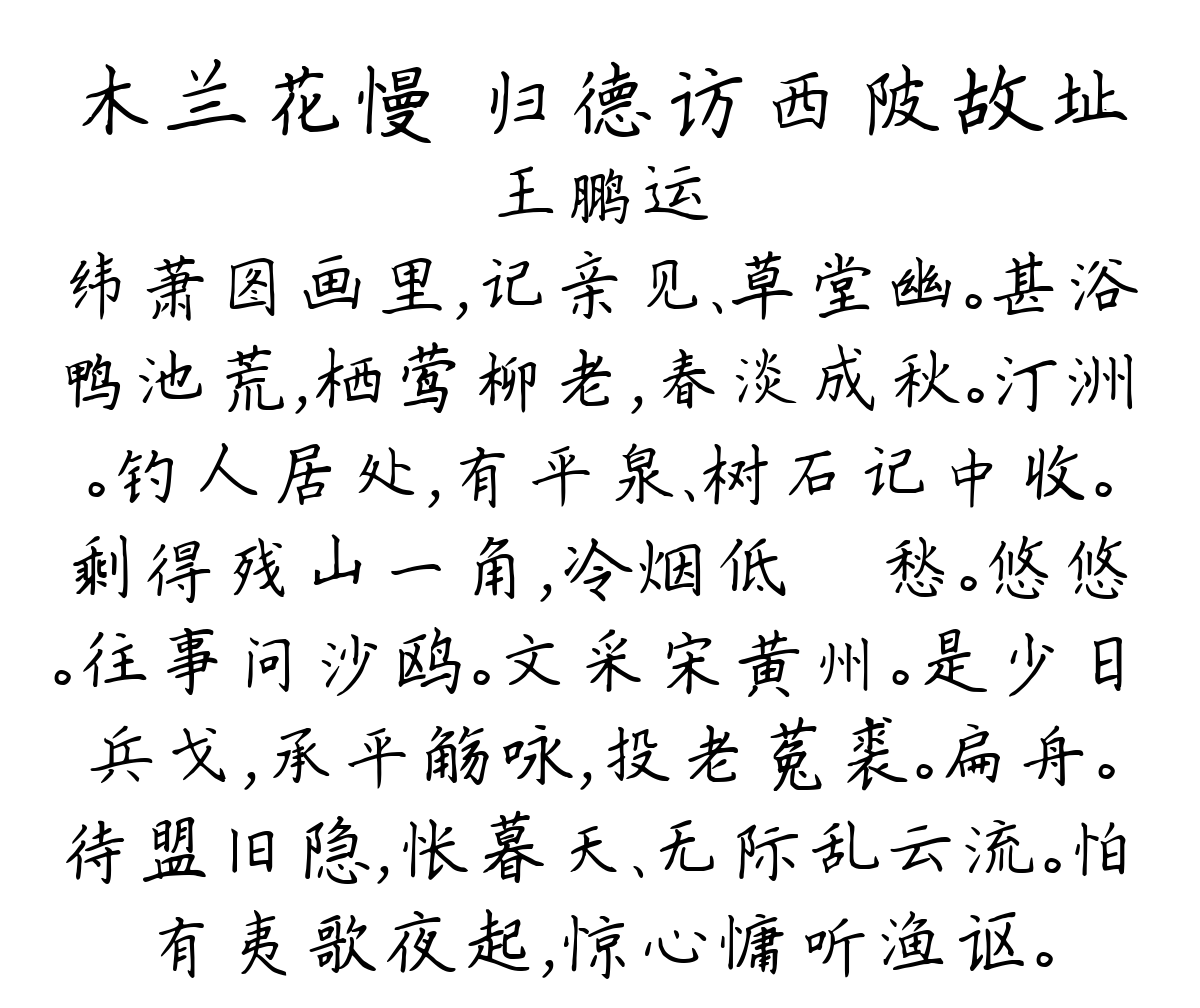 木兰花慢 归德访西陂故址
王鹏运
纬萧图画里,记亲见、草堂幽。甚浴
鸭池荒,栖莺柳老,春淡成秋。汀洲
。钓人居处,有平泉、树石记中收。
剩得残山一角,冷烟低 愁。悠悠
。往事问沙鸥。文采宋黄州。是少日
兵戈,承平觞咏,投老菟裘。扁舟。
待盟旧隐,怅暮天、无际乱云流。怕
有夷歌夜起,惊心慵听渔讴。